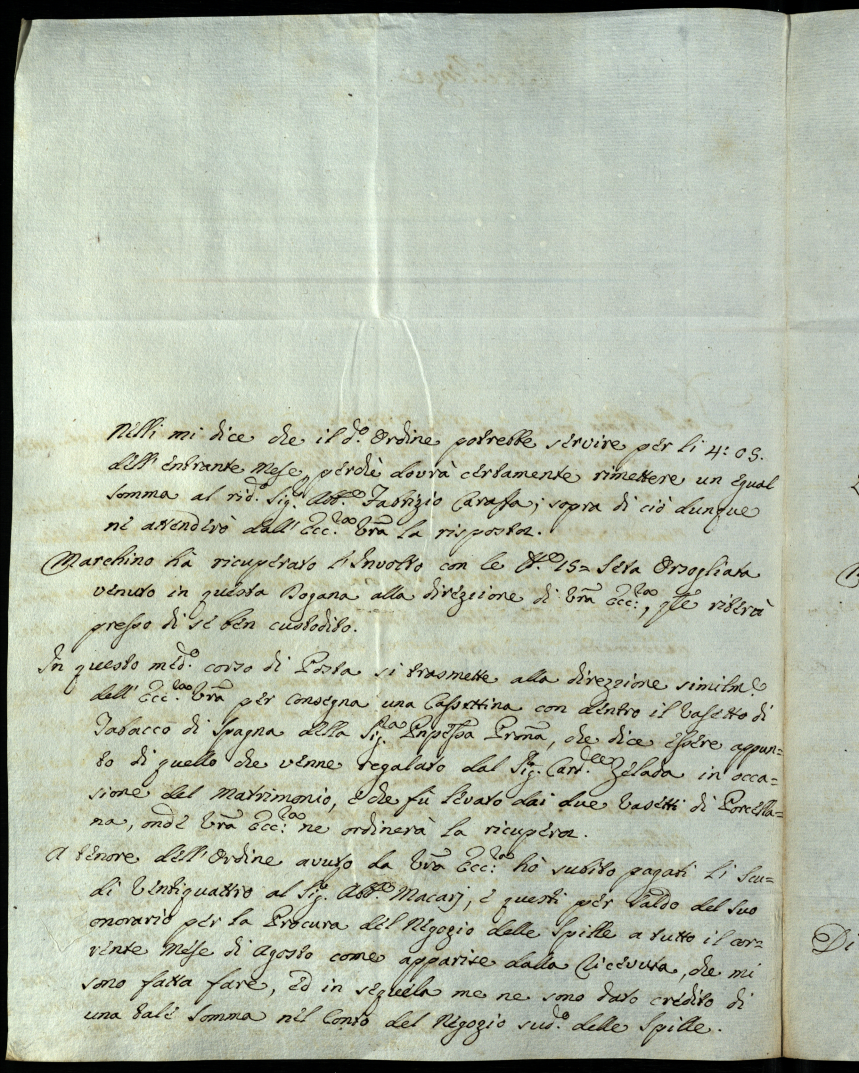 Nelli mi dice che il dº Ordine potrebbe servire per li 4: o 5.
dell'entrante Mese, perchè dovrà certamente rimettere un egual
somma al ridº Sigr Abbe Fabrizio Caraffa; sopra di ciò dunque
ne attenderò dall'Eccza Vrã la risposta.
Marchino hà ricuperato l'Involto con le 15= Seta Orsogliata
venuto in questa Dogana alla direzzione di Vrã Eccza, qle riterrà
presso di se ben custodito.
In questo medº corso di Posta si trasmette alla direzzione similmte
dell'Eccza Vrã per consegna una Cassettina con dentro il Vasetto di
Tabacco di Spagna della Sigra Pnpessa Pronã, che dice essere appun=
to di quello che venne regalato dal Sigr Cardle Zelada in occa=
sione del Matrimonio, e che fù levato dai due Vasetti di Porcella=
na, onde Vrã Eccza ne ordinerà la ricupera.
A tenore dell'Ordine avuto da Vrã Eccza hò subito pagati li Scu=
di Ventiquattro al Sigr Abbe Macarj, e questi per saldo del suo
onorario per la Procura del Negozio delle Spille a tutto il cor=
rente Mese di Agosto come apparisce dalla Ricevuta, che mi
sono fatta fare, ed in sequela me ne sono dato credito di
una tale somma nel Conto del Negozio sudº delle Spille.
Di